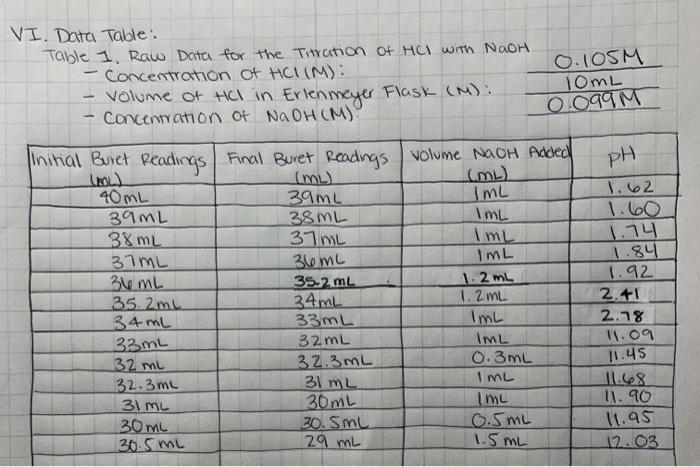 VI. Data Table:
Table 1. Raw Data for the Titration of HCl with NaOH
- Concentration of HCl (M): 0.105M
- Volume of HCl in Erlenmeyer Flask (M): 10mL
- Concentration of NaOH (M): 0.099M
Initial Buret Readings (mL) Final Buret Readings (mL) Volume NaOH Added (mL) pH
40mL 39mL 1mL 1.62
39mL 38mL 1mL 1.60
38mL 37mL 1mL 1.74
37mL 36mL 1mL 1.84
36mL 35.2mL 1.2mL 1.92
35.2mL 34mL 1.2mL 2.41
34mL 33mL 1mL 2.78
33mL 32mL 1mL 11.09
32mL 32.3mL 0.3mL 11.45
32.3mL 31mL 1mL 11.68
31mL 30mL 1mL 11.90
30mL 30.5mL 0.5mL 11.95
30.5mL 29mL 1.5mL 12.03